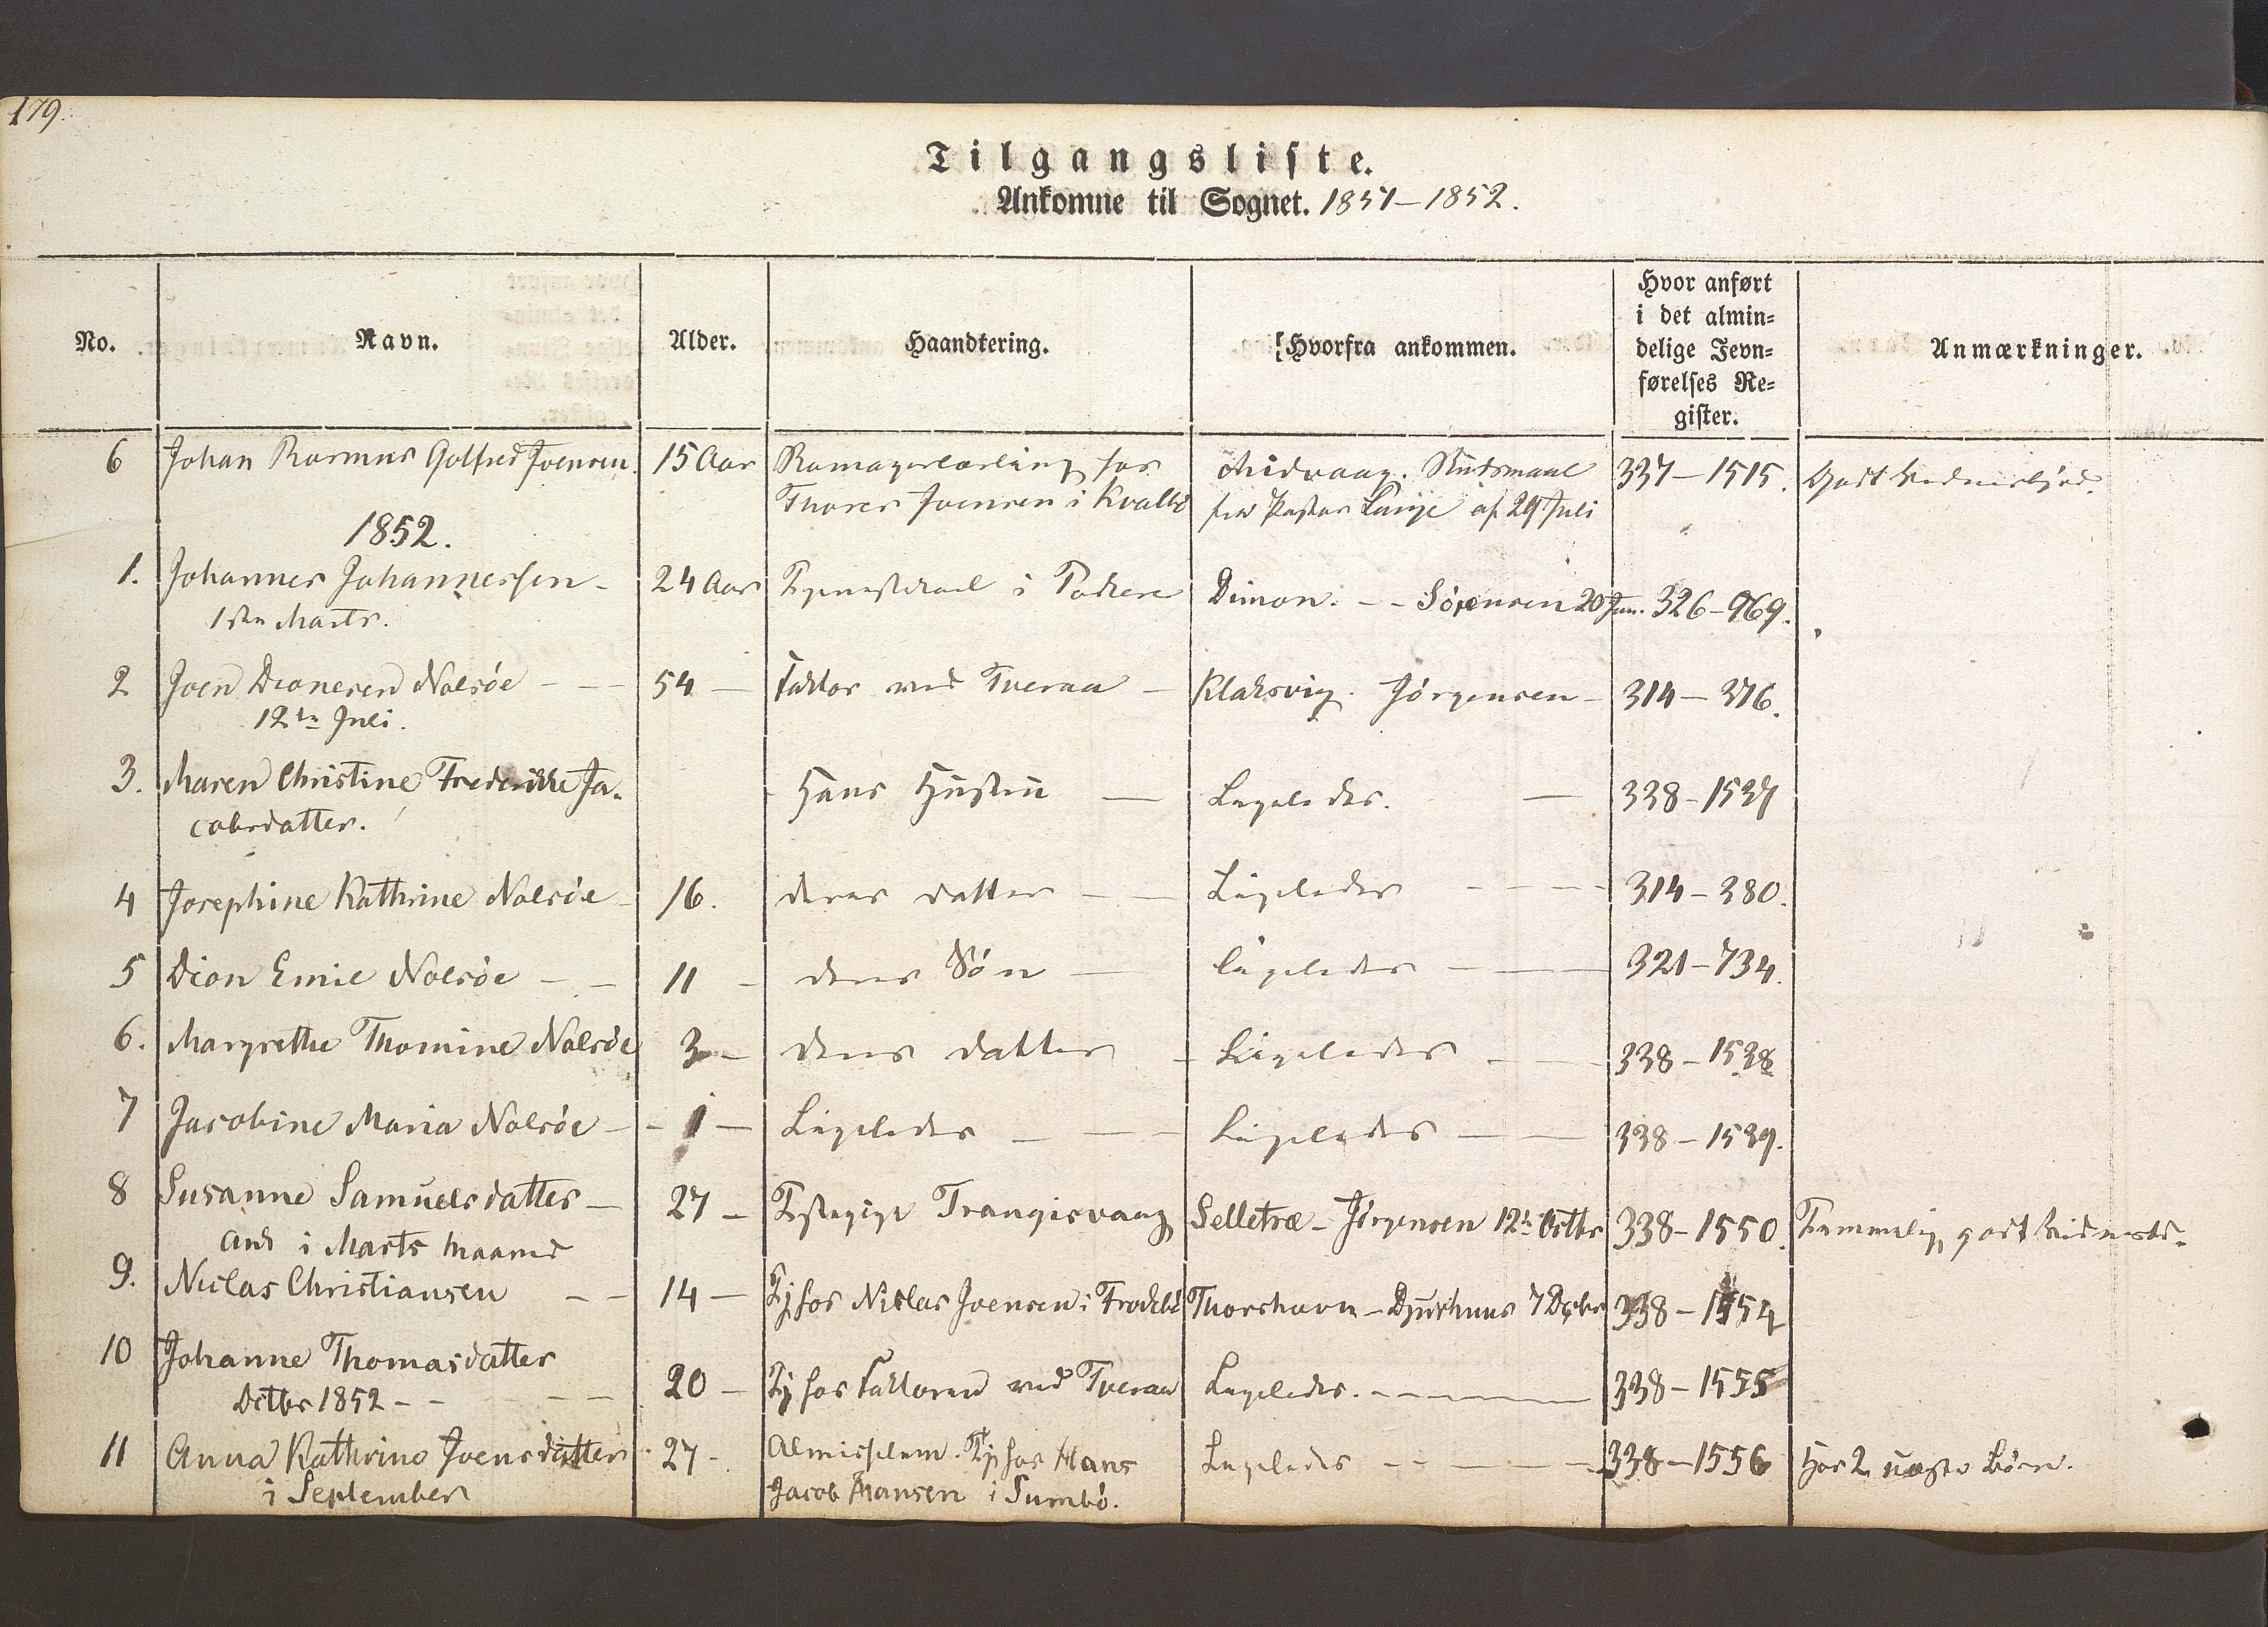 179.
Tilgangsliste.
Ankomne til Sognet. 1851-1852.
No. Navn. Alder. Haandtering. Hvorfra ankommen. Hvor anført i det almin= delige Jevn= førelses Re= gister. Anmærkninger.
6 Johan Rasmus Golfred Joensen. 15 Aar hos Midvaag. Skudsmaal 337-1515. Godt
Thoves Joensen i Kvalbö fra Pastor Lunje af 29 Juli
1852.
1. Johannes Johannessen - 24 Aar Tjenestekarl i Porkere Dimon. - - Sörensen 20 Jan. 326-969.
1ste Marts.
2 Joen Dionesen Nolsöe - - 54 - Faktor ved Tveraa - Klaksvig. Jörgensen - 314-376.
12te Juli.
3. Maren Christine Frederikke Ja- Hans Hustru - Ligeledes. - 338-1537
cobsdatter.
4 Josephine Kathrine Nolsöe - 16. deres datter - - Ligeledes - - - - 314-380.
5 Dion Emil Nolsöe - - 11 - deres Sön - ligeledes - - - 321-734.
6. Margrethe Thomine Nolsöe 3 - deres datter - Ligeledes - - 338-1538
7 Jacobine Maria Nolsöe - - 1 - Ligeledes - - - Ligeledes - - 338-1539.
8 Susanne Samuelsdatter - 27 - Trangisvaag Selletræ - Jörgensen 12te Octbr 338-1550. Temmelig godt
Ank i Marts Maaned
9. Niclas Christiansen - - 14 - Tj hos Niclas Joensen i Frodebö Thorshavn - Djurhuus 7 Dcbr 338-1554
10 Johanne Thomasdatter
Octbr 1852 - - - - 20 - Tj hos Faktoren ved Tveraa Ligeledes. - - - - 338-1555
11 Anna Kathrine Joensdatter 27 - Almisselem. Tj hos Hans Ligeledes - - - - 338-1556 Har 2 uægte Börn.
i September Jacob Hansen i Sumbö.